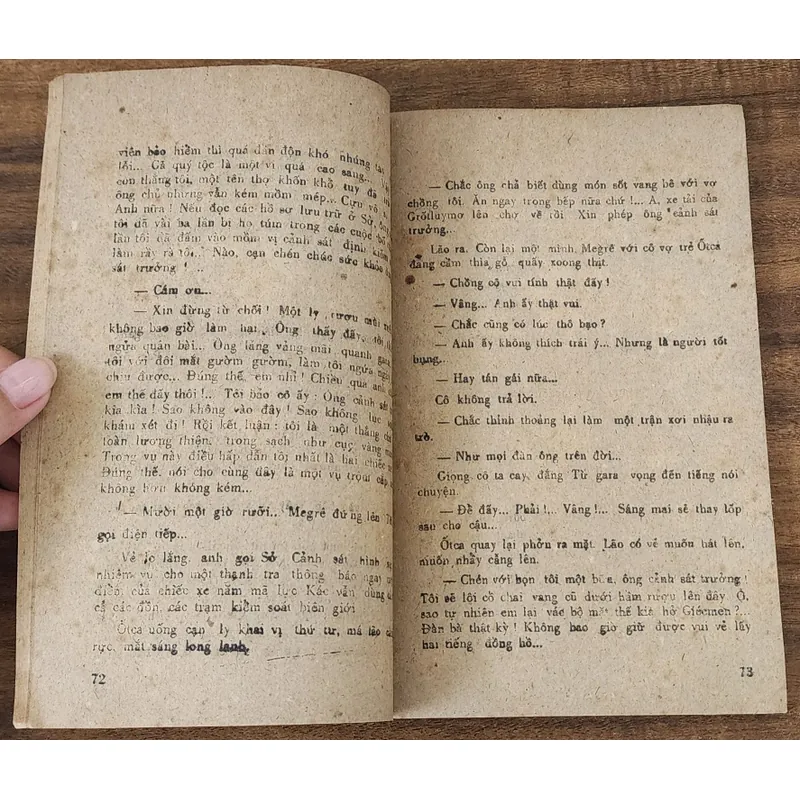 viên bảo hiểm thì quá dần độn khó nhúng tay
lỗi... Gã quý tộc là một vị quá cao sang...
con thắng tôi, một tên thợ khốn khổ tuy đã trở
ông chủ nhưng vẫn kém mồm mép... Cựu võ
Anh nữa ! Nếu đọc các hồ sơ lưu trữ ở Sở, ông
tôi đã vài ba lần bị họ túm trong các cuộc bố
lần tôi đã đấm vào mồm vị cảnh sát định kiếm
làm rầy rà tôi. Nào, cạn chén chúc sức khỏe
sát trưởng ! ..
— Cám ơn...
— Xin đừng từ chối ! Một ly rượu mùi
không bao giờ làm hại. Ông thấy đấy, tôi
ngửa quân bài... Ông lảng vảng mãi quanh gara
tôi với đôi mắt gườm gườm, làm tôi ngứa ngáy
chịu được... Đúng thế, em nhỉ ! Chiều qua anh
em thế đấy thôi !.. Tôi bảo cô ấy : Ông cảnh sát
kia kìa ! Sao không vào đây ! Sao không lục
khám xét đi ! Rồi kết luận : tôi là một thằng
toàn lương thiện, trong sạch như cục vàng
Trong vụ này điều hấp dẫn tôi nhất là hai chiếc
Đúng thế, nói cho cùng đây là một vụ trộm cắp
không hơn không kém...
— Mười một giờ rưỡi.. Megrê đứng lên
gọi điện tiếp...
Vẻ lo lắng, anh gọi Sở Cảnh sát hình sự
nhiệm vụ cho một thanh tra thông báo ngay
điểm của chiếc xe năm mã lực Kác vẫn dùng
cả các đồn, các trạm kiểm soát biên giới
Ôtca uống cạn ly khai vị thứ tư, má lão
rực, mắt sáng long lanh.
72
— Chắc ông chả biết dùng món sốt vang bê với vợ
chồng tôi. Ăn ngay trong bếp nữa chứ !... A, xe tải của
Grôtluymơ lên chợ về rồi Xin phép ông cảnh sát
trưởng...
Lão ra. Còn lại một mình Megrê với cô vợ trẻ Ôtca
đang cầm thìa gỗ quấy xoong thật.
— Chồng cô vui tính thật đấy !
— Vâng... Anh ấy thật vui.
— Chắc cũng có lúc thô bạo ?
— Anh ấy không thích trái ý... Nhưng là người tốt
bụng...
— Hay tán gái nữa...
Cô không trả lời.
— Chắc thỉnh thoảng lại làm một trận xơi nhậu ra
trò.
— Như mọi đàn ông trên đời...
Giọng cô ta cay đắng Từ gara vọng đến tiếng nói
chuyện.
— Để đấy... Phải !.. Vâng !... Sáng mai sẽ thay lốp
sau cho cậu...
Ôtca quay lại phởn ra mặt. Lão có vẻ muốn hát lên,
muốn nhảy cẫng lên.
— Chén với bọn tôi một bữa, ông cảnh sát trưởng !
Tôi sẽ lôi cổ chai vang cũ dưới hầm rượu lên đây. Ô,
sao tự nhiên em lại vác bộ mặt thế kia hở Giécmen ?...
Đàn bà thật kỳ ! Không bao giờ giữ được vui vẻ lấy
hai tiếng đồng hồ...
73